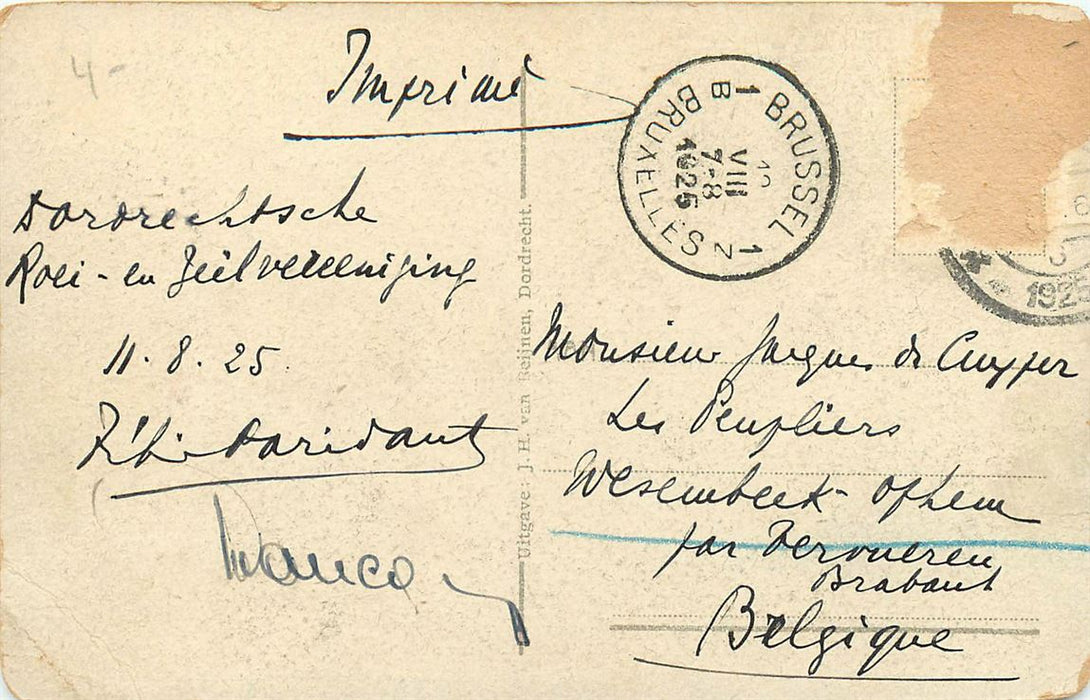 4-
Imprimé
Dordrechtsche
Roei- en Zeilvereeniging
11.8.25
Daridant
Uitgave: J. H. van Reijnen, Dordrecht.
1 BRUSSEL 1
B BRUXELLES N
VIII
7-8
1925
1925
Monsieur Jacques de Cuyper
Les Peupliers
Wesembeek-Ophem
par Tervueren
Brabant
Belgique